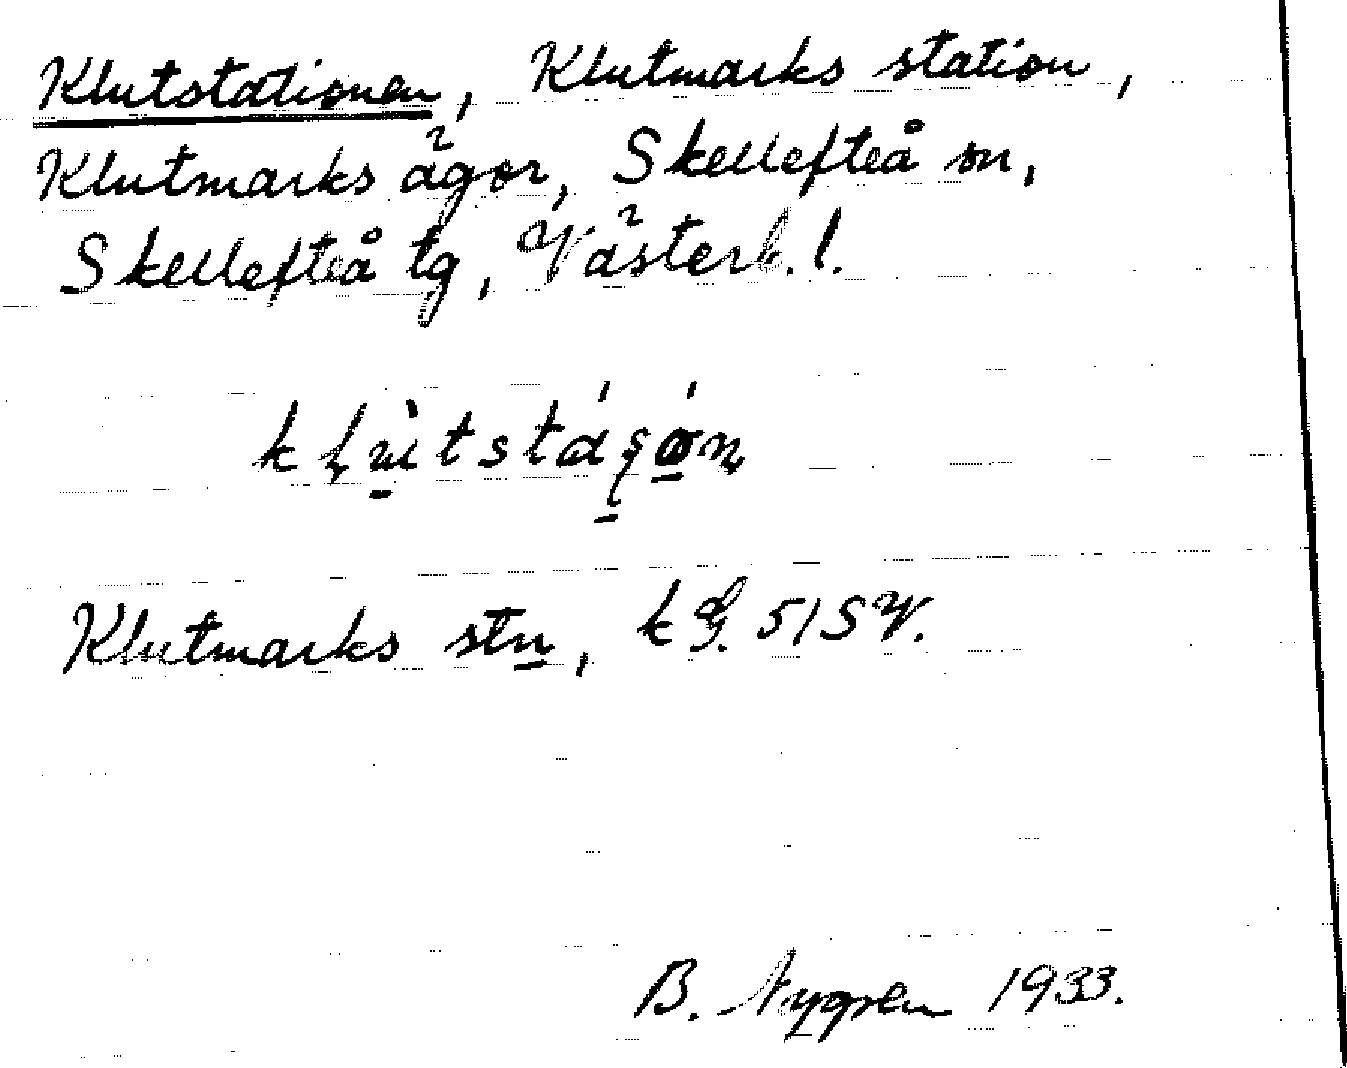 Klutstationen, Klutmarks station,
Klutmarks ägor, Skellefteå sn,
Skellefteå tg, Västerb. l.
Klutmarks stn, kG. 51SV.
B. Nygren 1933.